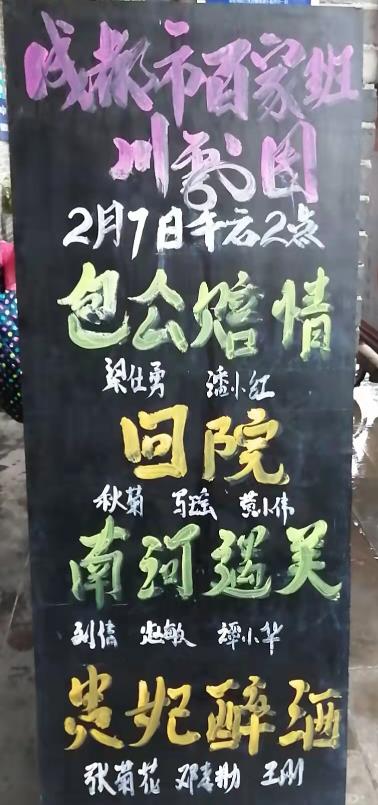 成都市百家班
川剧团
2月7日午后2点
包公赔情
梁仕勇 潘小红
回院
秋菊 马瑶 黄小伟
南河遇美
刘倩 赵敏 谭小华
贵妃醉酒
张菊花 王刚